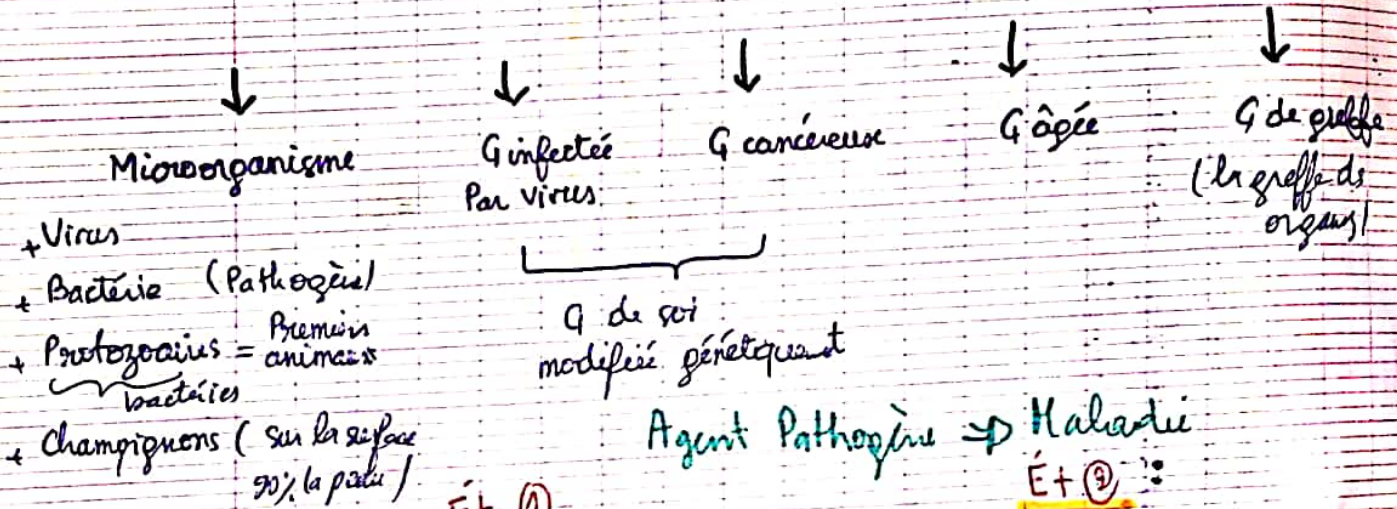 Microorganisme
+ Virus
+ Bactérie (Pathogène)
+ Protozoaires = Premiers animaux
bactéries
+ Champignons ( sur la surface
90% la
C infectée
Par virus
C cancéreuse
C de soi
modifiée génétiquemt
C âgée
C de greffe
( la greffe ds
organs)
Agent Pathogène => Maladie
Ét ①
Ét ② :